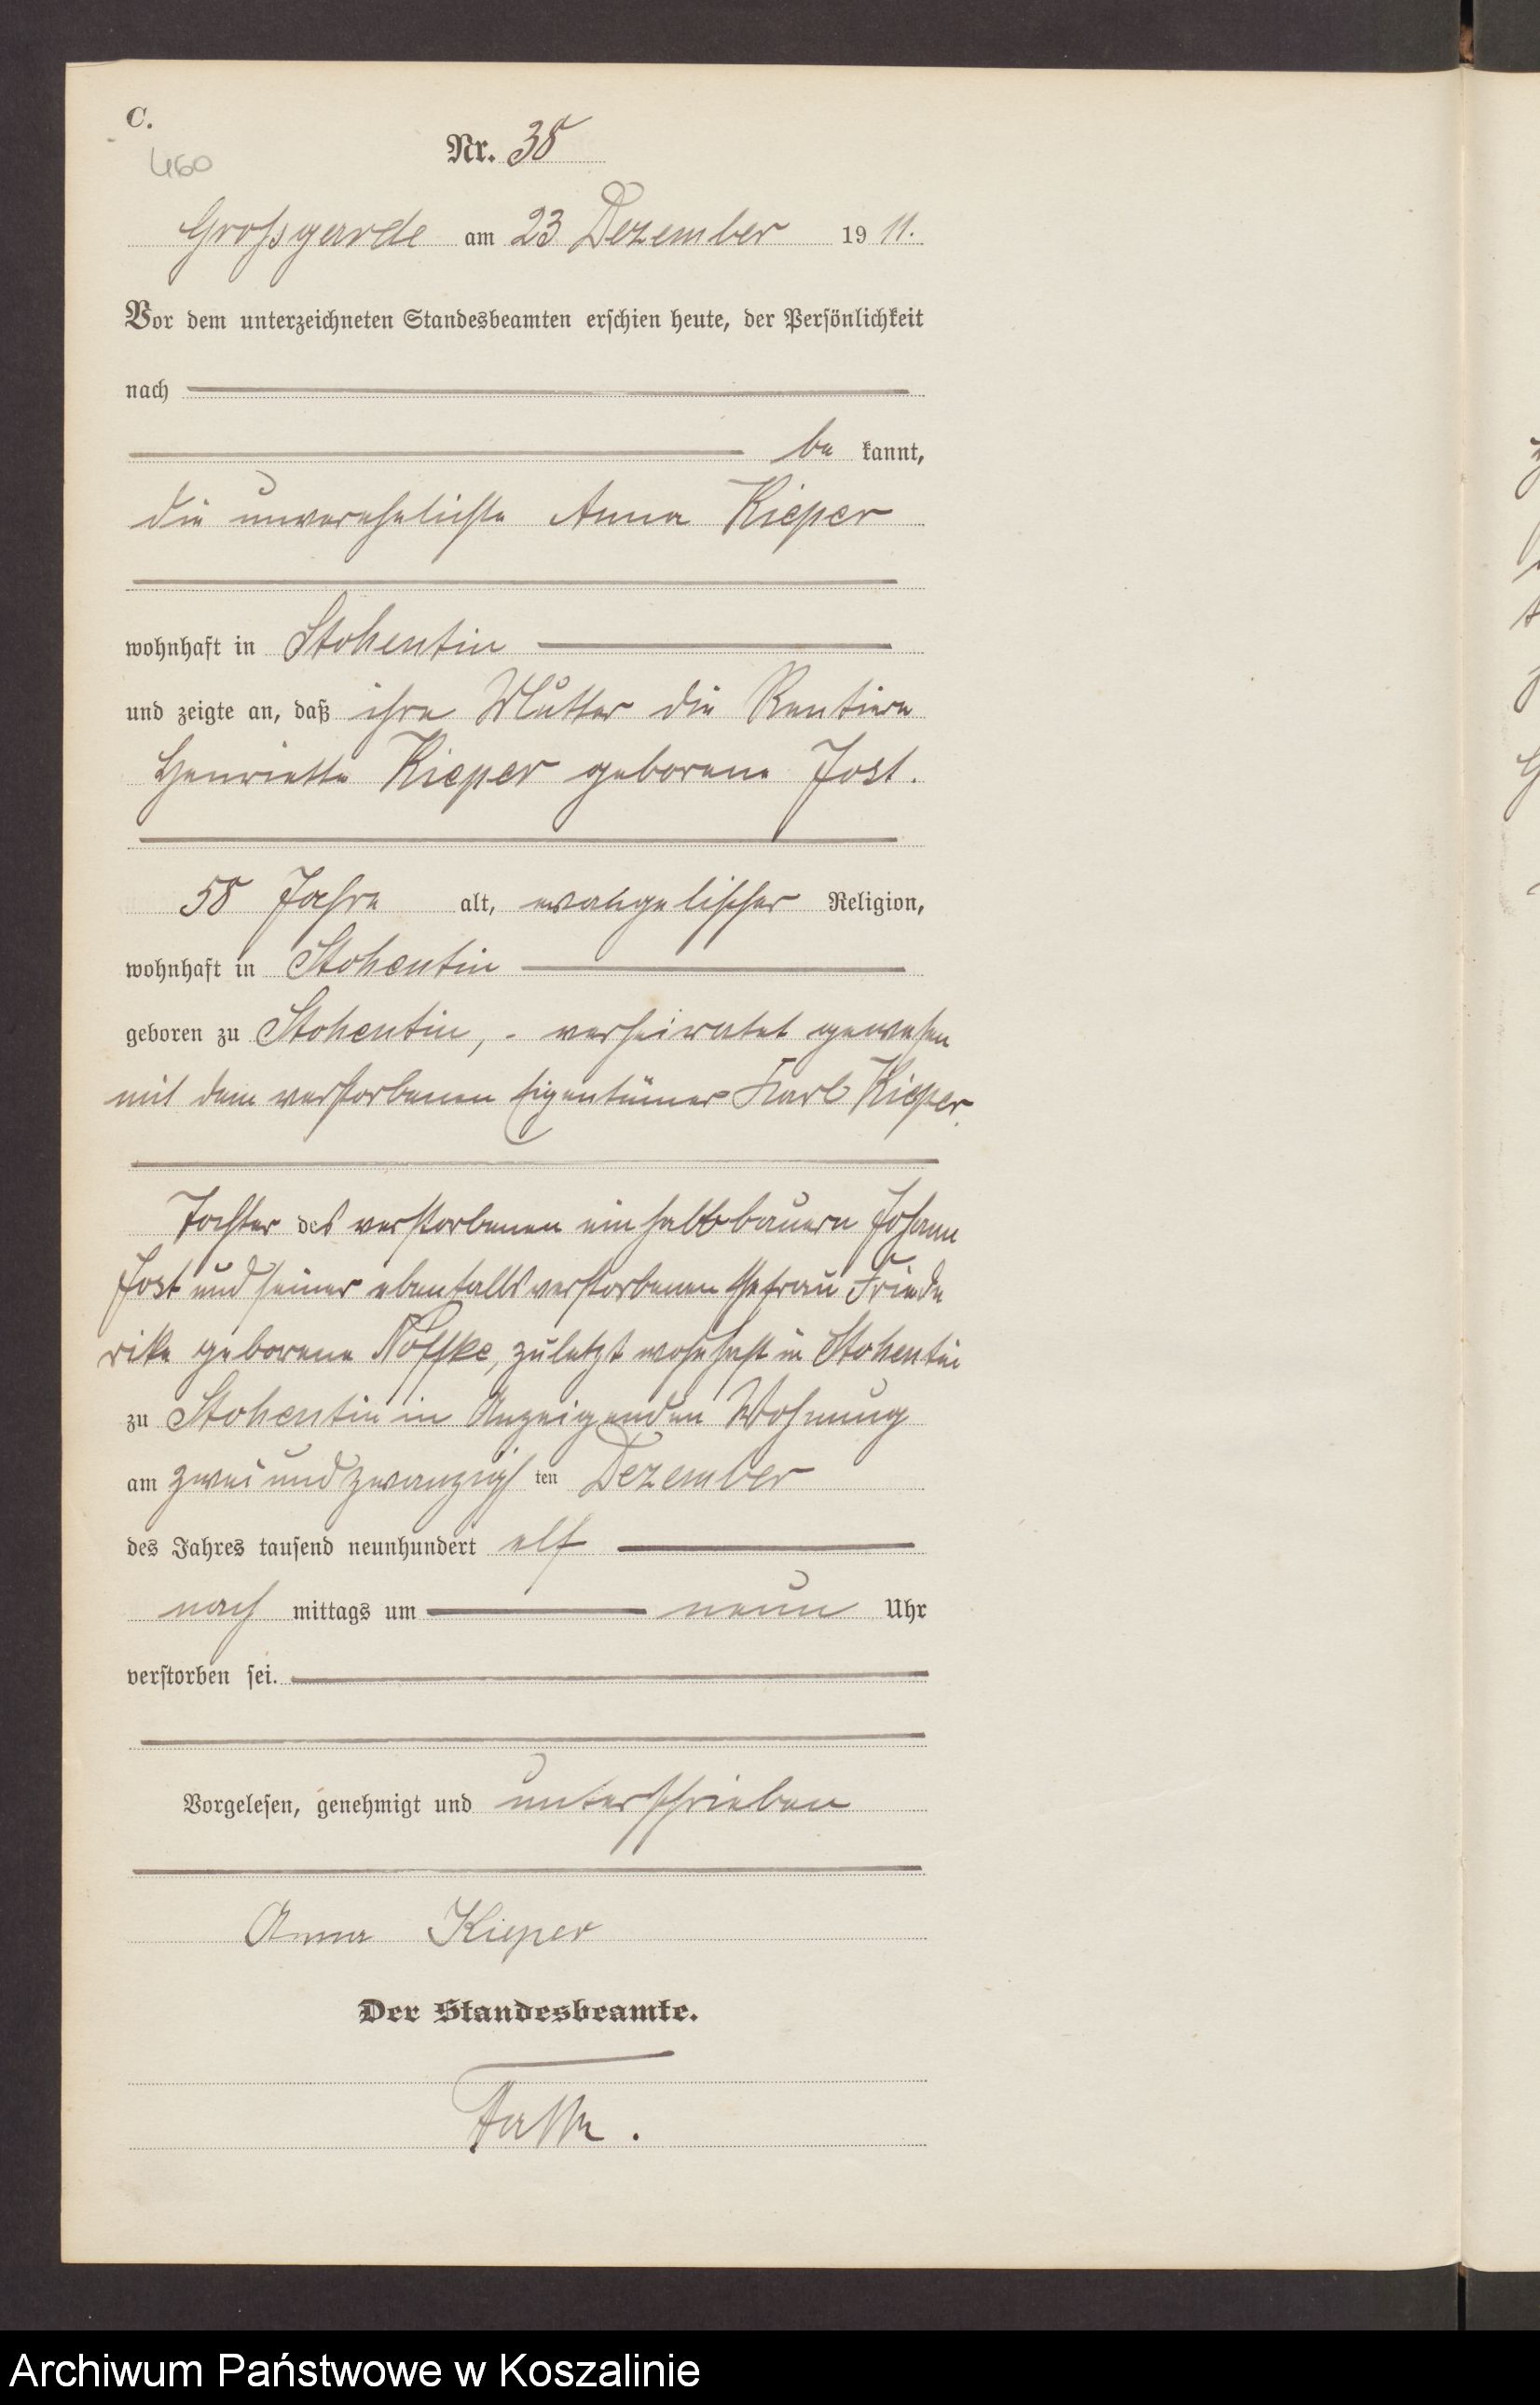 C.
460
Nr. 38
Großgarde am 23 Dezember 19 11.
Vor dem unterzeichneten Standesbeamten erschien heute, der Persönlichkeit
nach
be kannt,
die unverehelichte Anna Kieper
wohnhaft in Stohentin
und zeigte an, daß ihre Mutter die Rentiere
Henriette Kieper geborene Jost.
58 Jahre alt, evangelischer Religion,
wohnhaft in Stohentin
geboren zu Stohentin, - verheiratet gewesen
mit dem verstorbenen Eigentümer Karl Kieper.
Tochter des verstorbenen ein halbbauern Johann
Jost und seiner ebenfalls verstorbenen Ehefrau Friede
rike geborene Noffke, zuletzt wohnhaft in Stohentin
zu Stohentin in Anzeigenden Wohnung
am zwei und zwanzigs ten Dezember
des Jahres tausend neunhundert elf
nach mittags um neun Uhr
verstorben sei.
Vorgelesen, genehmigt und unterschrieben
Anna Kieper
Der Standesbeamte.
Archiwum Państwowe w Koszalinie